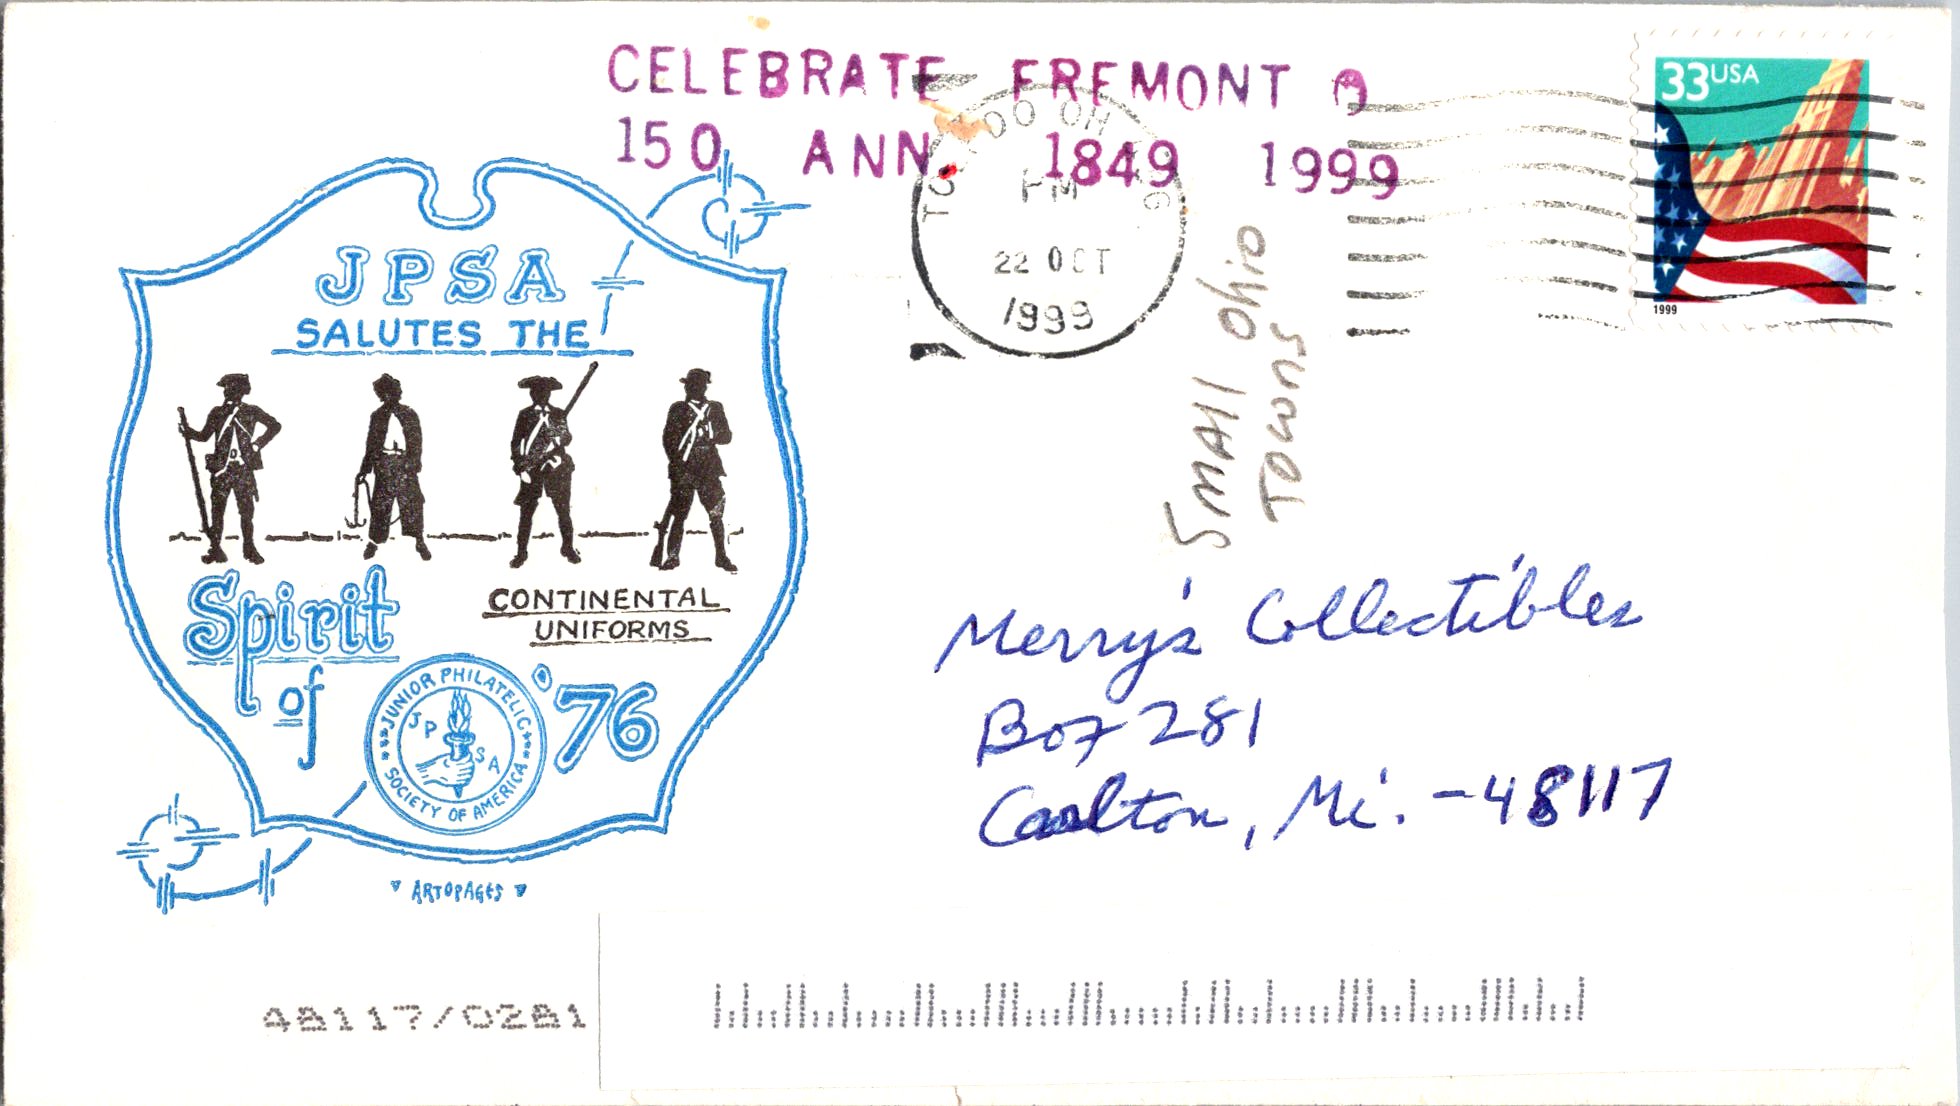 CELEBRATE FREMONT O
150 ANN. 1849 1999
TOLEDO OH
PM
22 OCT
1999
33USA
1999
Small Ohio
Towns
JPSA
SALUTES THE
Spirit
of
'76
CONTINENTAL
UNIFORMS
JUNIOR PHILATELIC
SOCIETY OF AMERICA
JP
SA
ARTOPAGES
Merry's Collectibles
Box 281
Carlton, Mi. - 48117
48117/0281